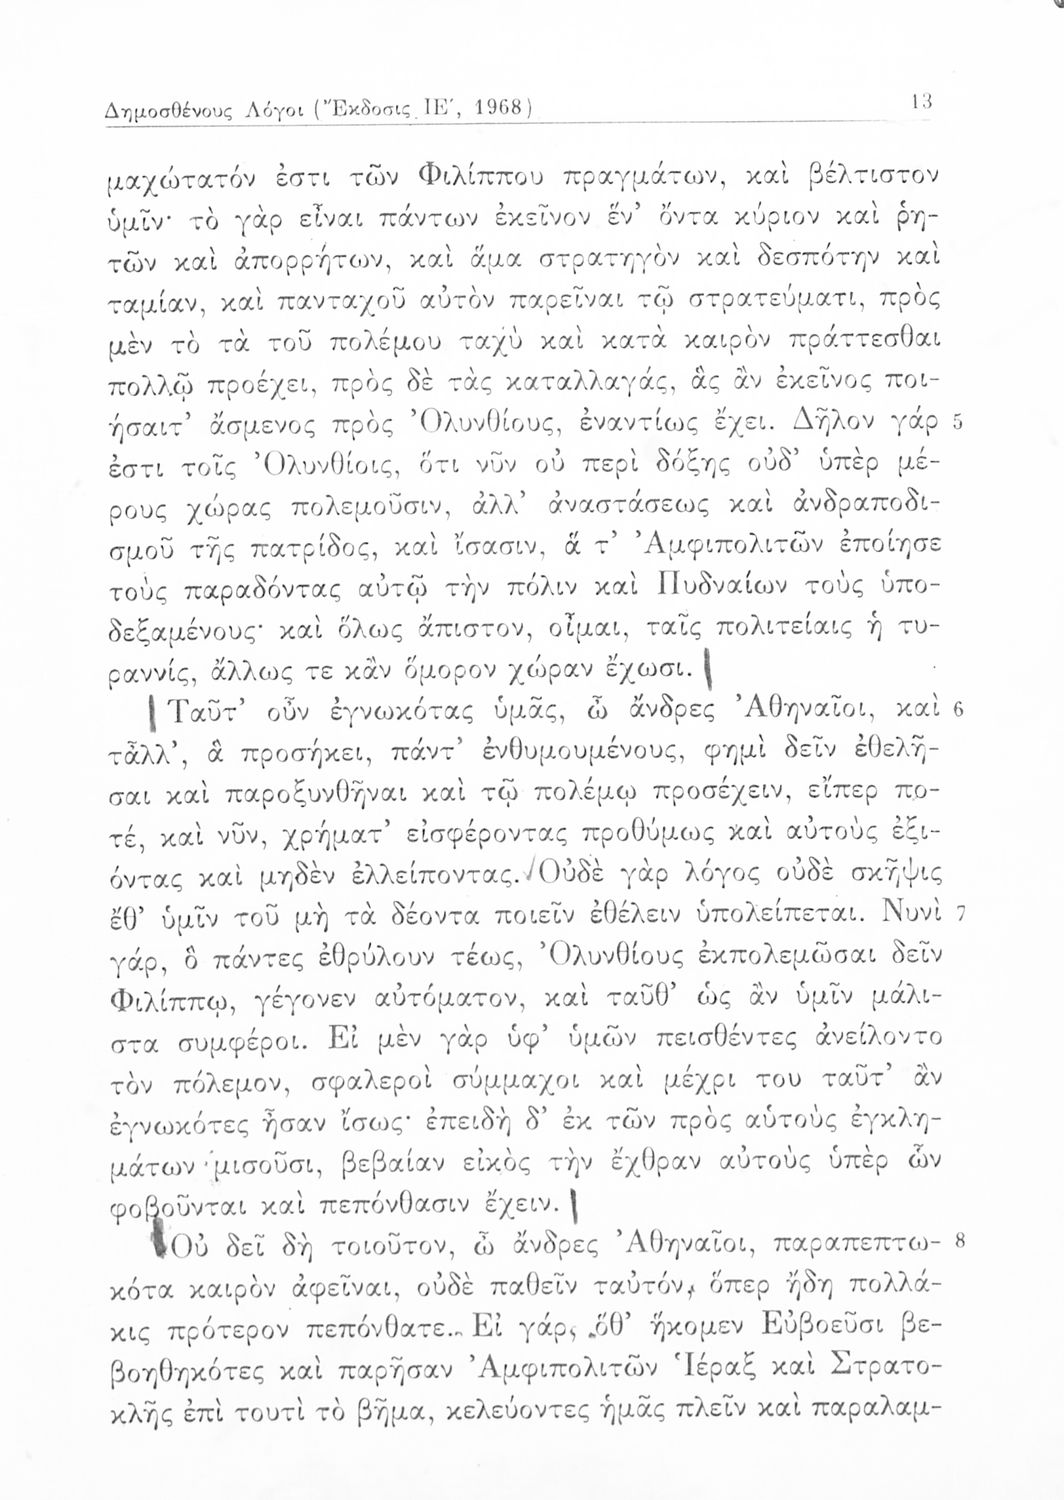 Δημοσθένους Λόγοι (Ἔκδοσις ΙΕ΄, 1968) 13
μαχώτατόν ἐστι τῶν Φιλίππου πραγμάτων, καὶ βέλτιστον
ὑμῖν· τὸ γὰρ εἶναι πάντων ἐκεῖνον ἕν’ ὄντα κύριον καὶ ῥη-
τῶν καὶ ἀπορρήτων, καὶ ἅμα στρατηγὸν καὶ δεσπότην καὶ
ταμίαν, καὶ πανταχοῦ αὐτὸν παρεῖναι τῷ στρατεύματι, πρὸς
μὲν τὸ τὰ τοῦ πολέμου ταχὺ καὶ κατὰ καιρὸν πράττεσθαι
πολλῷ προέχει, πρὸς δὲ τὰς καταλλαγάς, ἃς ἂν ἐκεῖνος ποι-
ήσαιτ’ ἄσμενος πρὸς Ὀλυνθίους, ἐναντίως ἔχει. Δῆλον γάρ 5
ἐστι τοῖς Ὀλυνθίοις, ὅτι νῦν οὐ περὶ δόξης οὐδ’ ὑπὲρ μέ-
ρους χώρας πολεμοῦσιν, ἀλλ’ ἀναστάσεως καὶ ἀνδραποδι-
σμοῦ τῆς πατρίδος, καὶ ἴσασιν, ἅ τ’ Ἀμφιπολιτῶν ἐποίησε
τοὺς παραδόντας αὐτῷ τὴν πόλιν καὶ Πυδναίων τοὺς ὑπο-
δεξαμένους· καὶ ὅλως ἄπιστον, οἶμαι, ταῖς πολιτείαις ἡ τυ-
ραννίς, ἄλλως τε κἂν ὅμορον χώραν ἔχωσι.
Ταῦτ’ οὖν ἐγνωκότας ὑμᾶς, ὦ ἄνδρες Ἀθηναῖοι, καὶ 6
τἆλλ’, ἃ προσήκει, πάντ’ ἐνθυμουμένους, φημὶ δεῖν ἐθελῆ-
σαι καὶ παροξυνθῆναι καὶ τῷ πολέμῳ προσέχειν, εἴπερ πο-
τέ, καὶ νῦν, χρήματ’ εἰσφέροντας προθύμως καὶ αὐτοὺς ἐξι-
όντας καὶ μηδὲν ἐλλείποντας. Οὐδὲ γὰρ λόγος οὐδὲ σκῆψις
ἔθ’ ὑμῖν τοῦ μὴ τὰ δέοντα ποιεῖν ἐθέλειν ὑπολείπεται. Νυνὶ 7
γάρ, ὃ πάντες ἐθρύλουν τέως, Ὀλυνθίους ἐκπολεμῶσαι δεῖν
Φιλίππῳ, γέγονεν αὐτόματον, καὶ ταῦθ’ ὡς ἂν ὑμῖν μάλι-
στα συμφέροι. Εἰ μὲν γὰρ ὑφ’ ὑμῶν πεισθέντες ἀνείλοντο
τὸν πόλεμον, σφαλεροὶ σύμμαχοι καὶ μέχρι του ταῦτ’ ἂν
ἐγνωκότες ἦσαν ἴσως· ἐπειδὴ δ’ ἐκ τῶν πρὸς αὑτοὺς ἐγκλη-
μάτων μισοῦσι, βεβαίαν εἰκὸς τὴν ἔχθραν αὐτοὺς ὑπὲρ ὧν
φοβοῦνται καὶ πεπόνθασιν ἔχειν.
Οὐ δεῖ δὴ τοιοῦτον, ὦ ἄνδρες Ἀθηναῖοι, παραπεπτω- 8
κότα καιρὸν ἀφεῖναι, οὐδὲ παθεῖν ταὐτόν, ὅπερ ἤδη πολλά-
κις πρότερον πεπόνθατε. Εἰ γάρ, ὅθ’ ἥκομεν Εὐβοεῦσι βε-
βοηθηκότες καὶ παρῆσαν Ἀμφιπολιτῶν Ἱέραξ καὶ Στρατο-
κλῆς ἐπὶ τουτὶ τὸ βῆμα, κελεύοντες ἡμᾶς πλεῖν καὶ παραλαμ-